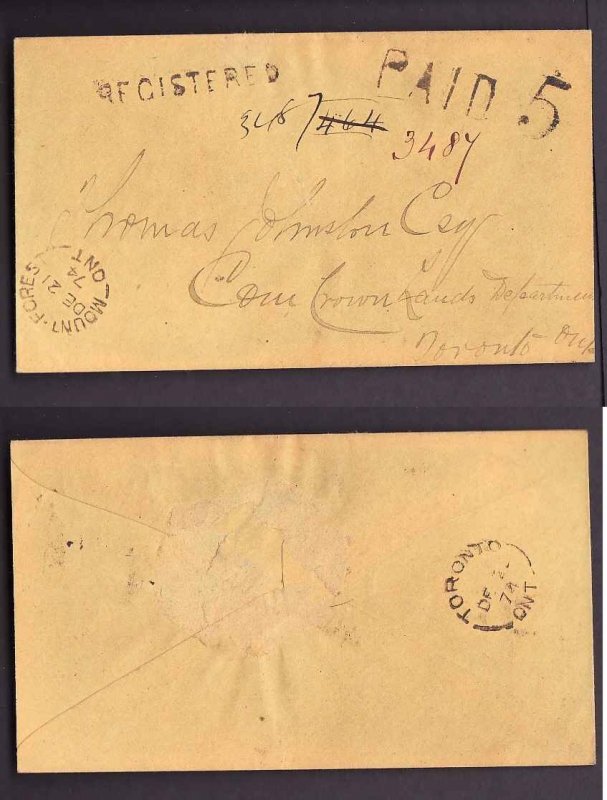 REGISTERED
PAID 5
3487 464
3487
Thomas Johnston Esq
Com Crown Lands Department
Toronto Ont
MOUNT-FOREST
DE 21
74
ONT
TORONTO
DE
74
ONT